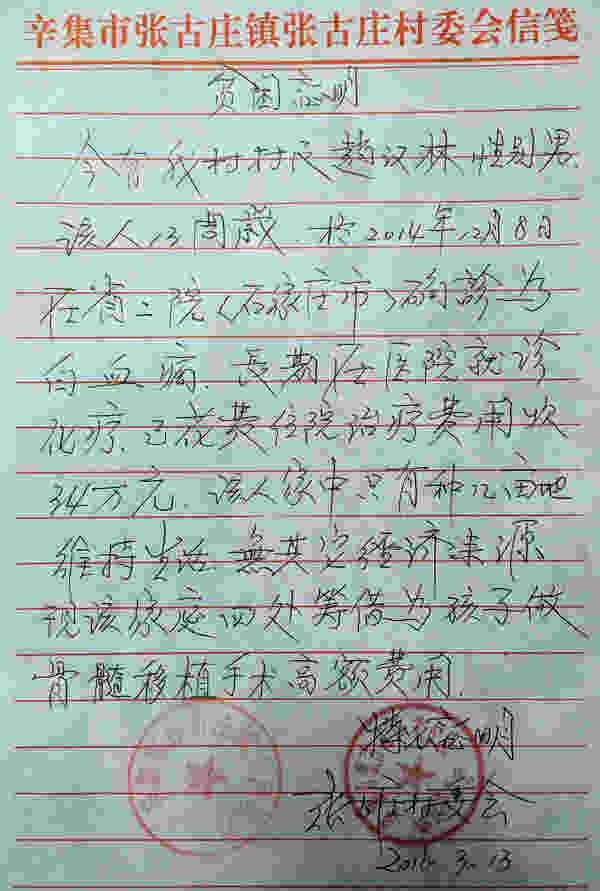 辛集市张古庄镇张古庄村委会信笺
贫困证明
今有我村村民赵汉林性别男
该人13周岁.于2014年12月8日
在省二院(石家庄市)确診为
白血病.長期在医院就诊
化疗.已花费住院治疗费用次
34万元.该人家中只有种几亩地
维持生活.無其它經济来源
现该家庭四处筹借为孩子做
骨髓移植手术高额费用.
特此证明
张古庄村委会
3.13